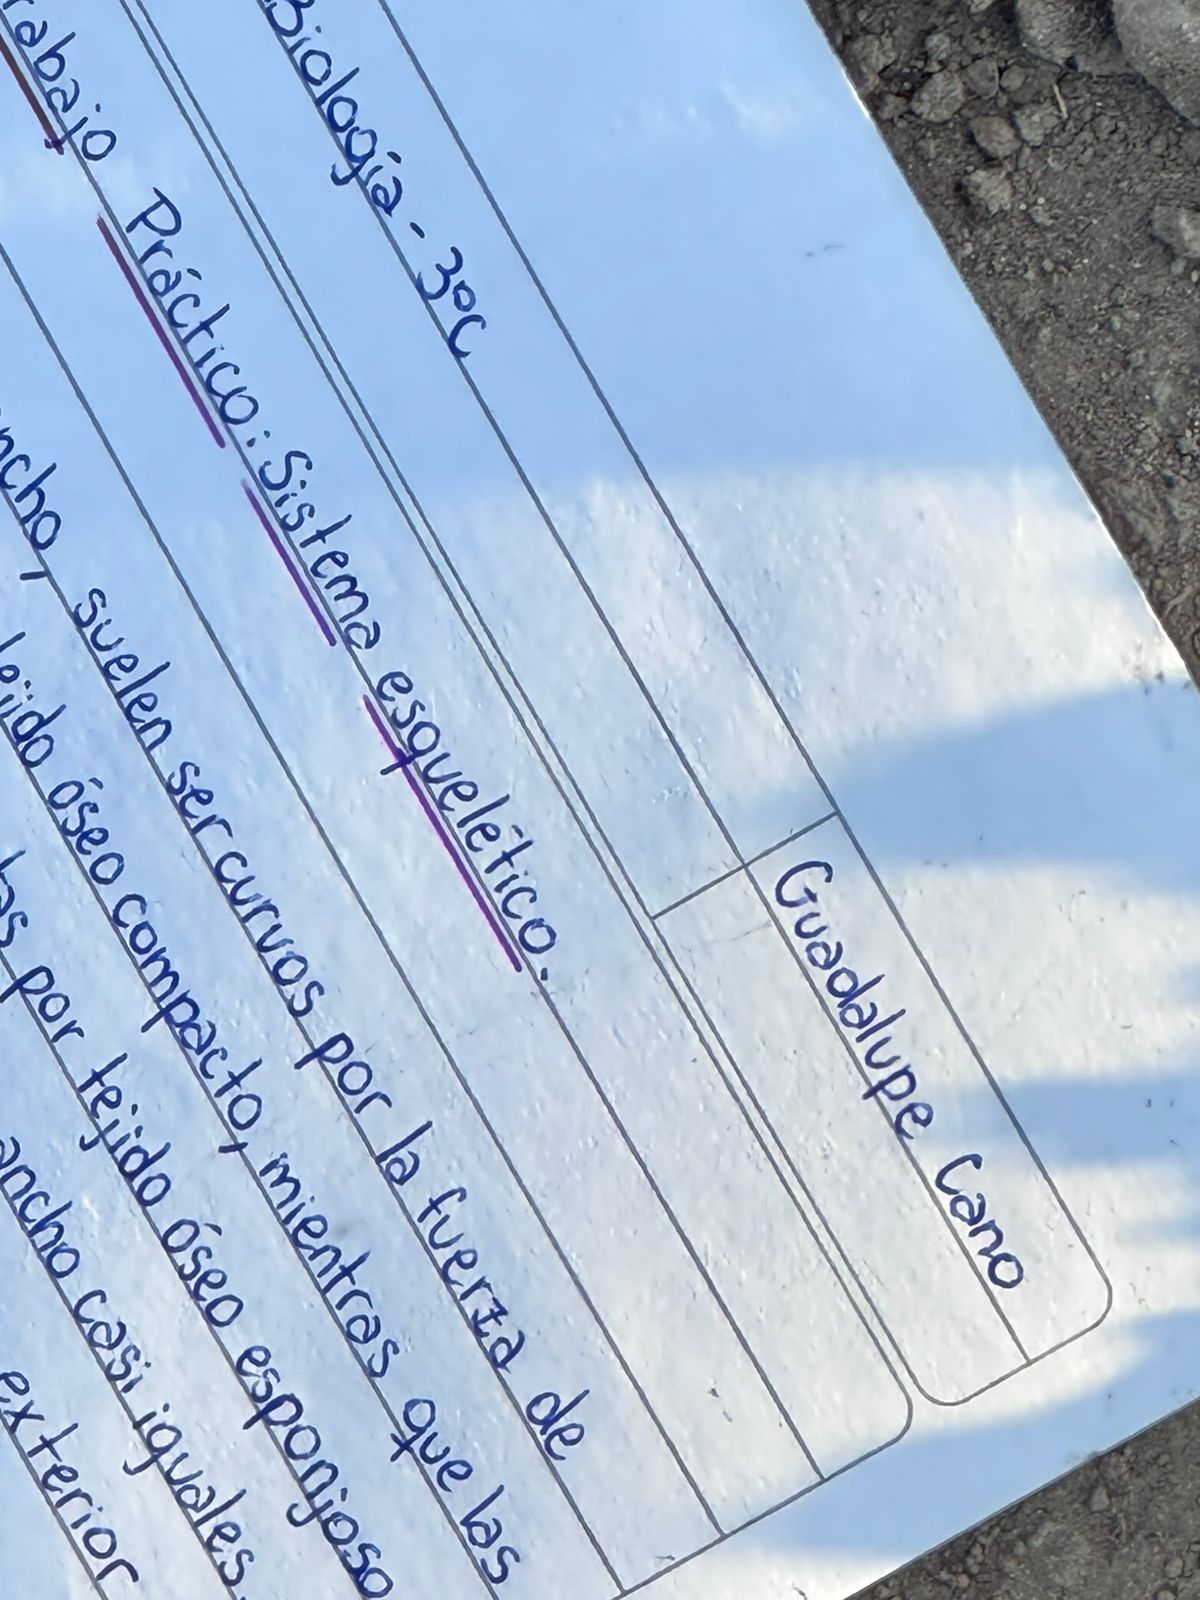 Biología - 3°C
Guadalupe Cano
Práctico: Sistema esquelético.
suelen ser curvos por la fuerza de
óseo compacto, mientras que las
por tejido óseo esponjoso
ancho casi iguales.
exterior